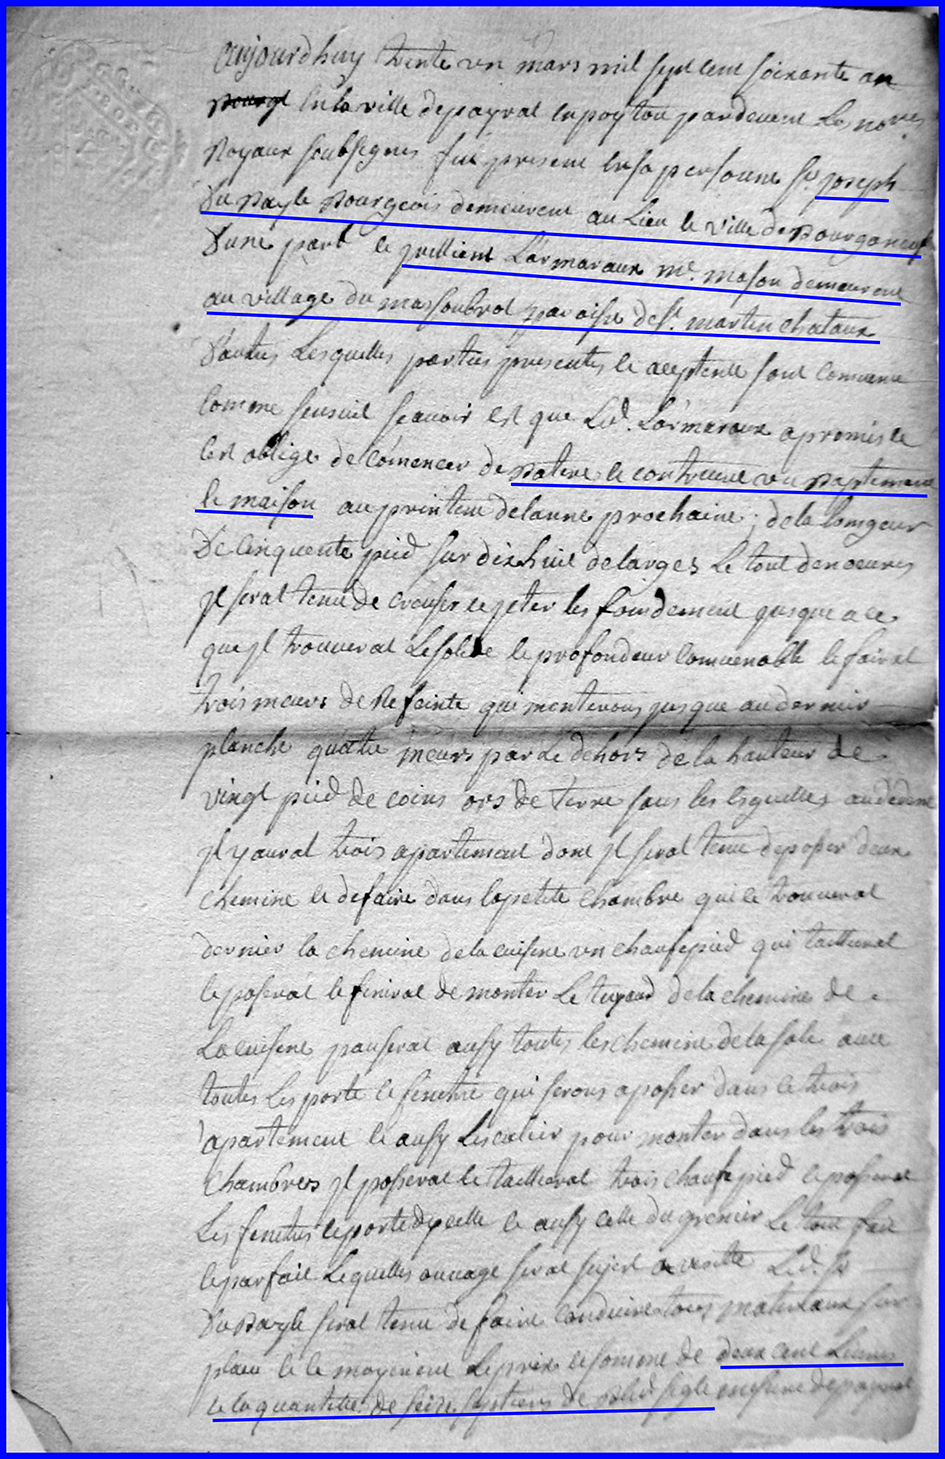 aujourdhuy trente un mars mil sept cent soixante an
en la ville depeyrat en poytou pardevent les nores
Royaux soubsignes fut present en sa personne sr joseph
Du Bourgeois demeurent au Lieu le ville de Bourganeuf
Dune part le jullient Larmaraux me. mason demeurent
au village du massoubrot paroisse de st. martin chataux
Dautres Lesquelles parties presente le aceptente sont convenu
comme sensuit scavoir est que Led. Larmaraux a promis le
cest oblige de comencer de Batire le contruire un Baptiment
le maison au printem delanne prochaine, dela longeur
De cinquente pied sur dixhuit delarges Le tout den oeuvres
jl serat tenu de creuser le jeter les fondement jusque a ce
que jl trouverat Lesolide le profondeur convenable le fairat
trois meurs de Refeinte qui monterons jusque au dernier
planche quatre meurs par Le dehors de la hauteur de
vingt pied de coins ors de terre sans les Esguilles au dedent
jl yaurat trois apartement dont jl serat tenu deposer deux
chemine le defaire dans lapetite chambre qui le trouverat
dernier la chemine dela cuisine un chaufepied qui taillierat
le poserat le finirat de monter Le tuyaud dela chemine de
La cuisene pauserat ausy toutes les chemine dela sale avec
toutes Les porte le fenetre qui serons aposer dans le trois
apartement le ausy Lescalier pour monter dans les trois
chambres jl poserat le taillierat trois chaufepied le poserat
Les fenetres leporte dycelle le ausy celle du grenier Le tout fait
leparfait Lequelles ouvrage serat sujet a visitte Led. Sr
Du serat tenu de faire conduire tous materiaux sur
place le le moyenent Leprix le somme de deux cent Livres
le la quantitte de seize septiers de Bled segle mesure depeyrat